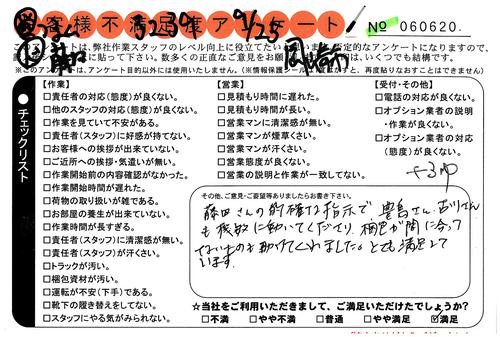 お客様不満足度アンケート! No 060620.
9/25
このアンケートは、弊社作業スタッフのレベル向上に役立て
を上に貼って下さい。数多くの正直なご意見をお願
(※このアンケートは、アンケート目的以外には使用いたしません。)(※情報保護シール 、再度貼りなおすことはできません)
●チェックリスト
【作業】
□責任者の対応(態度)が良くない。
□他のスタッフの対応(態度)が良くない。
□作業を見ていて不安がある。
□責任者(スタッフ)に好感が持てない。
□お客様への挨拶が出来ていない。
□ご近所への挨拶・気遣いが無い。
□作業開始前の内容確認がなかった。
□作業開始時間が遅れた。
□荷物の取り扱いが雑である。
□お部屋の養生が出来ていない。
□作業時間が長すぎる。
□責任者(スタッフ)に清潔感が無い。
□責任者(スタッフ)が汗くさい。
□トラックが汚い。
□梱包資材が汚い。
□運転が不安(下手)である。
□靴下の履き替えをしてない。
□スタッフにやる気がみられない。
【営業】
□見積もり時間に遅れた。
□見積もり時間が長い。
□営業マンに清潔感が無い。
□営業マンが煙草くさい。
□営業マンが汗くさい。
□営業態度が良くない。
□営業の説明と作業が一致してない。
【受付・その他】
□電話の対応が良くない。
□オプション業者の説明
・作業が良くない。
□オプション業者の対応
(態度)が良くない。
その他、ご意見・ご要望等ありましたらお書き下さい。
藤田さんの的確な指示で、豊島さん、古川さん
も機敏に動いてくださり、梱包が間に合って
ないものを助けてくれました。とても満足して
います。
☆当社をご利用いただきまして、ご満足いただけたでしょうか?
□不満 □やや不満 □普通 □やや満足 ☑満足